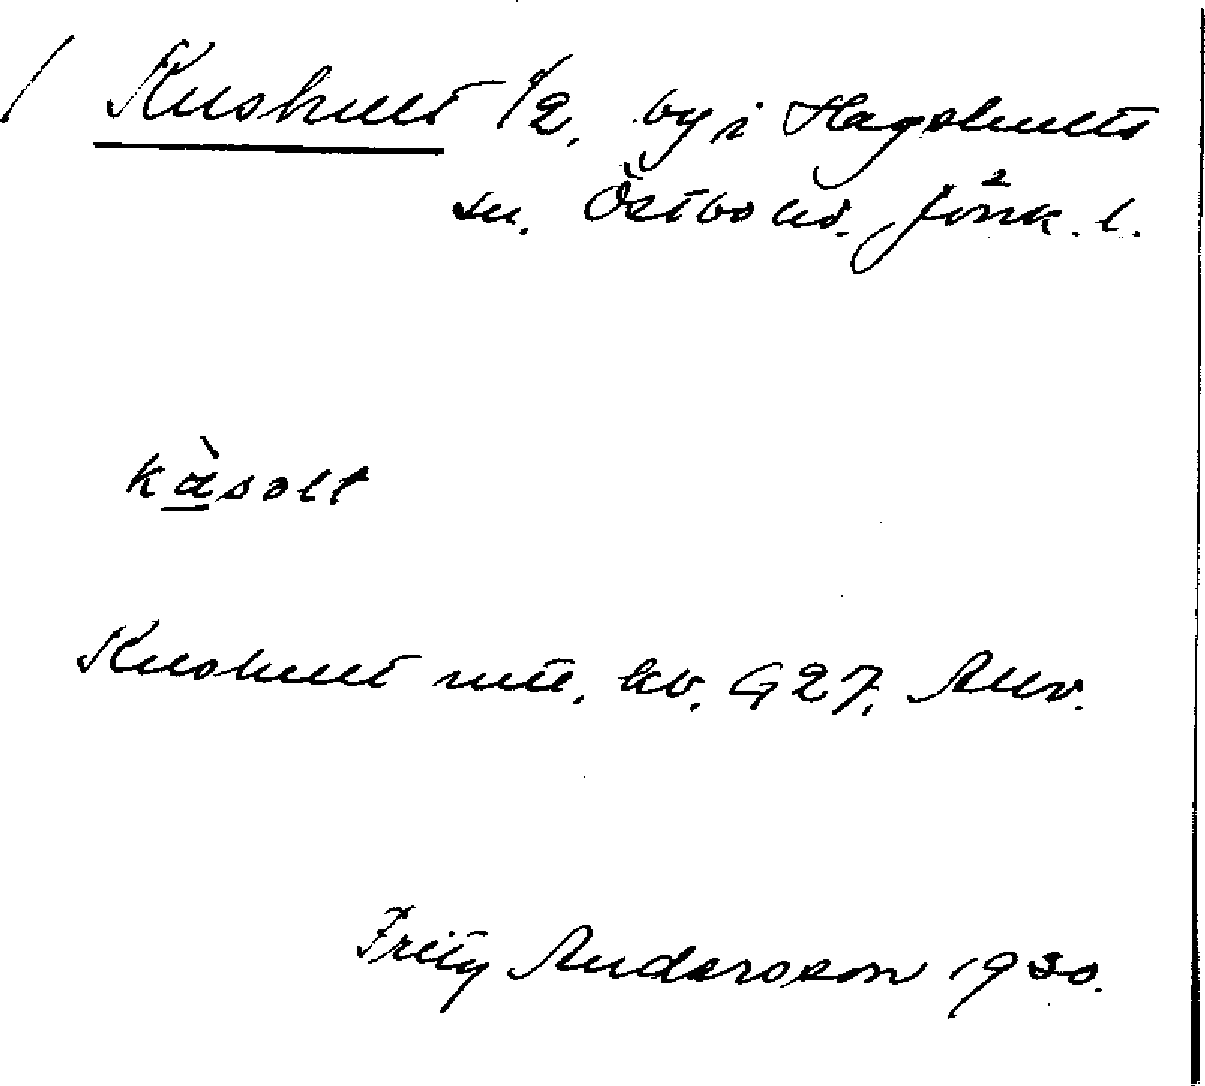 / Kushult 1/2, by i Hagshults
sn. Östbo hd. Jönk. l.
kàsolt
Kushult kv. G 27, Allv.
Fritz Andersson 1930.